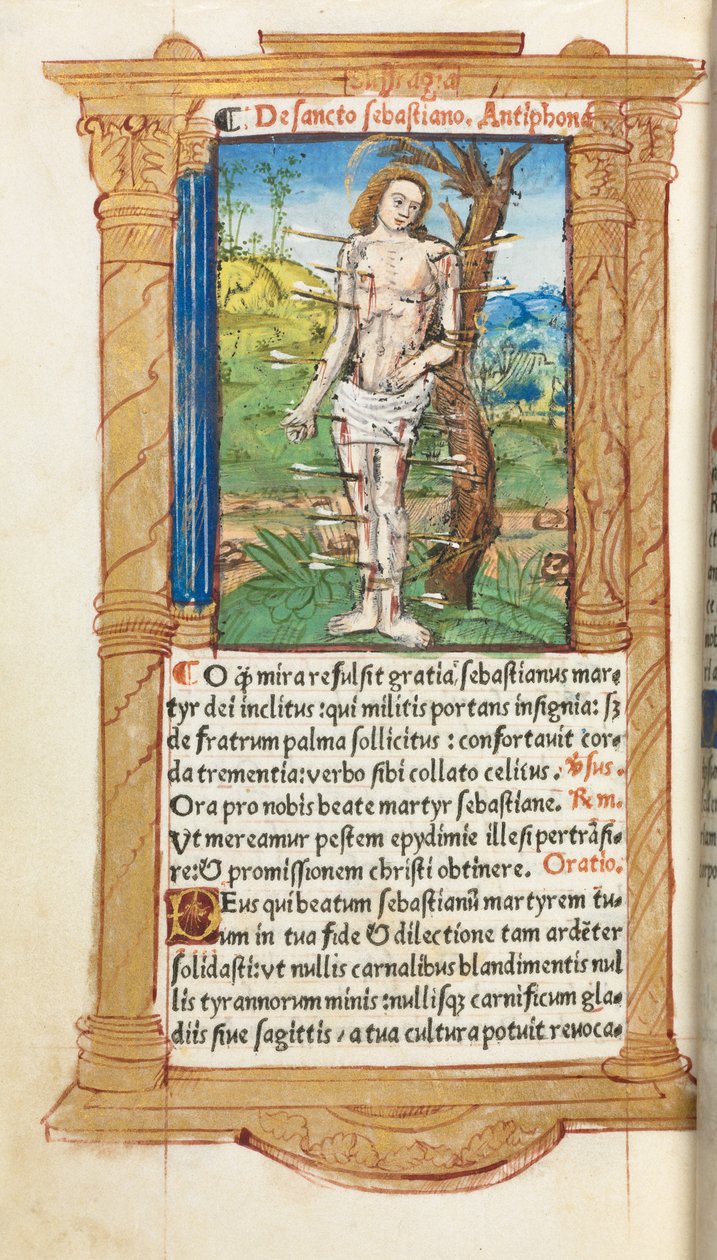 Suffragia
De sancto sebastiano. Antiphona
O q̄ mira refulsit gratia, sebastianus mar-
tyr dei inclitus: qui militis portans insignia: sʒ
de fratrum palma sollicitus: confortauit cor-
da trementia: verbo sibi collato celitus. v̄sus.
Ora pro nobis beate martyr sebastiane. ℞m.
Vt mereamur pestem epydimie illesi pertrāsi-
re: & promissionem christi obtinere. Oratio.
DEus qui beatum sebastianū martyrem tu-
um in tua fide & dilectione tam ardēter
solidasti: vt nullis carnalibus blandimentis nul
lis tyrannorum minis: nullisqʒ carnificum gla-
diis siue sagittis / a tua cultura potuit reuoca-